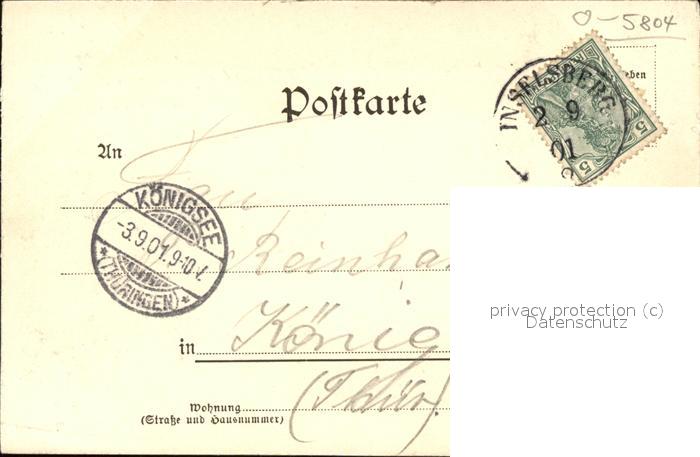 5804
INSELSBERG
2 9
01
5 5
eben
Postkarte
An
KÖNIGSEE
-3.9.01.9-10.V.
*(THÜRINGEN)*
Reinha
privacy protection (c)
Datenschutz
in König
(Thür.
Wohnung
(Straße und Hausnummer)